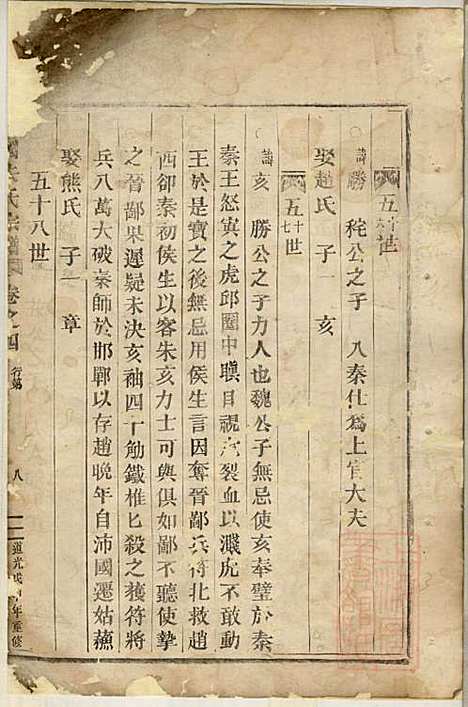 五十六世
諱勝 䄵公之子 入秦仕爲上官大夫
娶趙氏 子一 亥
五十七世
諱亥 勝公之子力人也魏公子無忌使亥奉璧於秦
秦王怒寘之虎邱圈中瞋目視裂血以濺虎不敢動
王於是寶之後無忌用侯生言因奪晉鄙兵將北救趙
西卻秦初侯生以客朱亥力士可與俱如鄙不聽使摯
之晉鄙果遲疑未決亥袖四十觔鐵椎匕殺之獲符將
兵八萬大破秦師於邯鄲以存趙晚年自沛國遷姑蘇
娶熊氏 子一 章
五十八世
氏宗譜 卷之四 行第 八 道光戊年重修